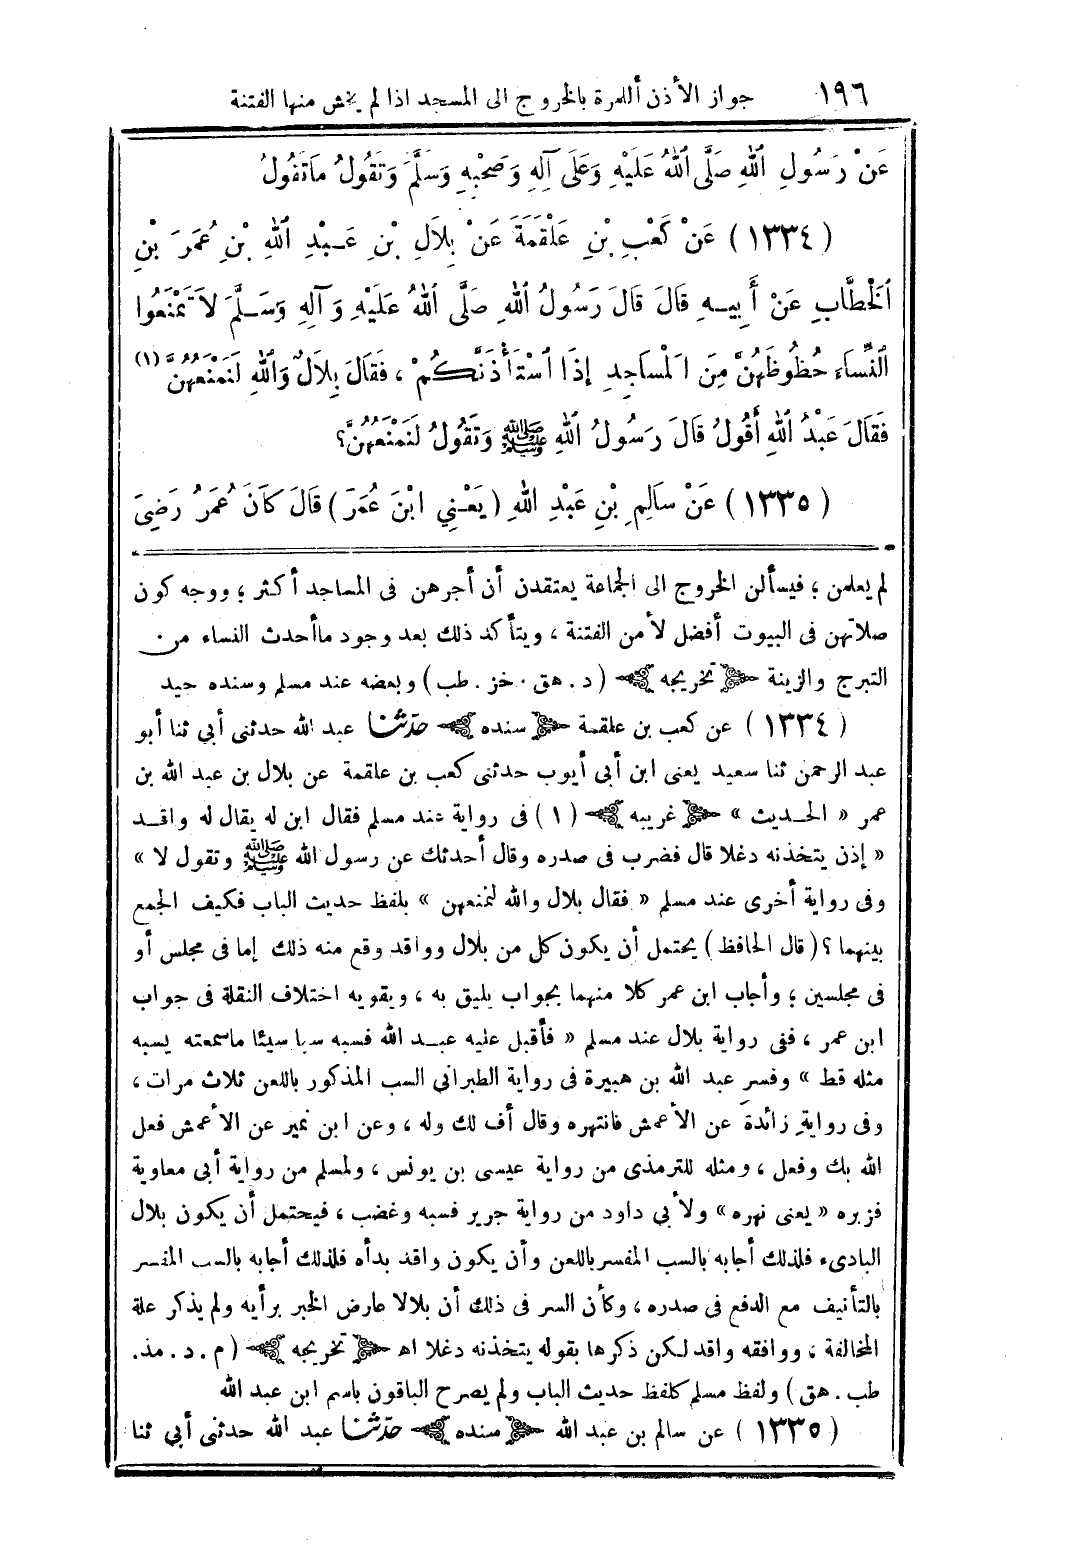 ١٩٦ جواز الأذن أللمرة بالخروج الى المسجد اذا لم يخش منها الفتنة
عَنْ رَسُولِ اللهِ صَلَّى اللهُ عَلَيْهِ وَعَلَى آلِهِ وَصَحْبِهِ وَسَلَّمَ وَتَقُولُ مَاتَقُولُ
(١٣٣٤) عَنْ كَعْبِ بْنِ عَلْقَمَةَ عَنْ بِلَالِ بْنِ عَبْدِ اللهِ بْنِ عُمَرَ بْنِ
الْخَطَّابِ عَنْ أَبِيهِ قَالَ قَالَ رَسُولُ اللهِ صَلَّى اللهُ عَلَيْهِ وَآلِهِ وَسَلَّمَ لَا تَمْنَعُوا
النِّسَاءَ حُظُوظَهُنَّ مِنَ الْمَسَاجِدِ إِذَا اسْتَأْذَنَّكُمْ ، فَقَالَ بِلَالٌ وَاللهِ لَنَمْنَعُهُنَّ (١)
فَقَالَ عَبْدُ اللهِ أَقُولُ قَالَ رَسُولُ اللهِ ﷺ وَتَقُولُ لَنَمْنَعُهُنَّ؟
(١٣٣٥) عَنْ سَالِمِ بْنِ عَبْدِ اللهِ (يَعْنِي ابْنَ عُمَرَ) قَالَ كَانَ عُمَرُ رَضِيَ
لم يعلمن ؛ فيسألن الخروج الى الجماعة يعتقدن أن أجرهن فى المساجد أكثر ؛ ووجه كون
صلاتهن فى البيوت أفضل لأمن الفتنة ، ويتأكد ذلك بعد وجود ماأحدث النساء من
التبرج والزينة ﴿تخريجه﴾ (د . هق . خز . طب) وبعضه عند مسلم وسنده جيد
(١٣٣٤) عن كعب بن علقمة ﴿سنده﴾ حدّثنا عبد الله حدثنى أبي ثنا أبو
عبد الرحمن ثنا سعيد يعنى ابن أبي أيوب حدثنى كعب بن علقمة عن بلال بن عبد الله بن
عمر « الحديث » ﴿غريبه﴾ (١) فى رواية عند مسلم فقال ابن له يقال له واقد
« إذن يتخذنه دغلا قال فضرب فى صدره وقال أحدثك عن رسول الله ﷺ وتقول لا »
وفى رواية أخرى عند مسلم « فقال بلال والله لنمنعهن » بلفظ حديث الباب فكيف الجمع
بينهما ؟ (قال الحافظ) يحتمل أن يكون كل من بلال وواقد وقع منه ذلك إما فى مجلس أو
فى مجلسين ؛ وأجاب ابن عمر كلا منهما بجواب يليق به ، ويقويه اختلاف النقلة فى جواب
ابن عمر ، ففى رواية بلال عند مسلم « فأقبل عليه عبد الله فسبه سبا سيئا ماسمعته يسبه
مثله قط » وفسر عبد الله بن هبيرة فى رواية الطبراني السب المذكور باللعن ثلاث مرات ،
وفى رواية زائدة عن الأعمش فانتهره وقال أف لك وله ، وعن ابن نمير عن الأعمش فعل
الله بك وفعل ، ومثله للترمذى من رواية عيسى بن يونس ، ولمسلم من رواية أبي معاوية
فزبره « يعنى نهره » ولأبي داود من رواية جرير فسبه وغضب ، فيحتمل أن يكون بلال
البادىء فلذلك أجابه بالسب المفسر باللعن وأن يكون واقد بدأه فلذلك أجابه بالسب المفسر
بالتأنيف مع الدفع فى صدره ، وكأن السر فى ذلك أن بلالا عارض الخبر برأيه ولم يذكر علة
المخالفة ، ووافقه واقد لكن ذكرها بقوله يتخذنه دغلا اهـ ﴿تخريجه﴾ (م . د . مذ .
طب . هق) ولفظ مسلم كلفظ حديث الباب ولم يصرح الباقون باسم ابن عبد الله
(١٣٣٥) عن سالم بن عبد الله ﴿سنده﴾ حدّثنا عبد الله حدثنى أبي ثنا